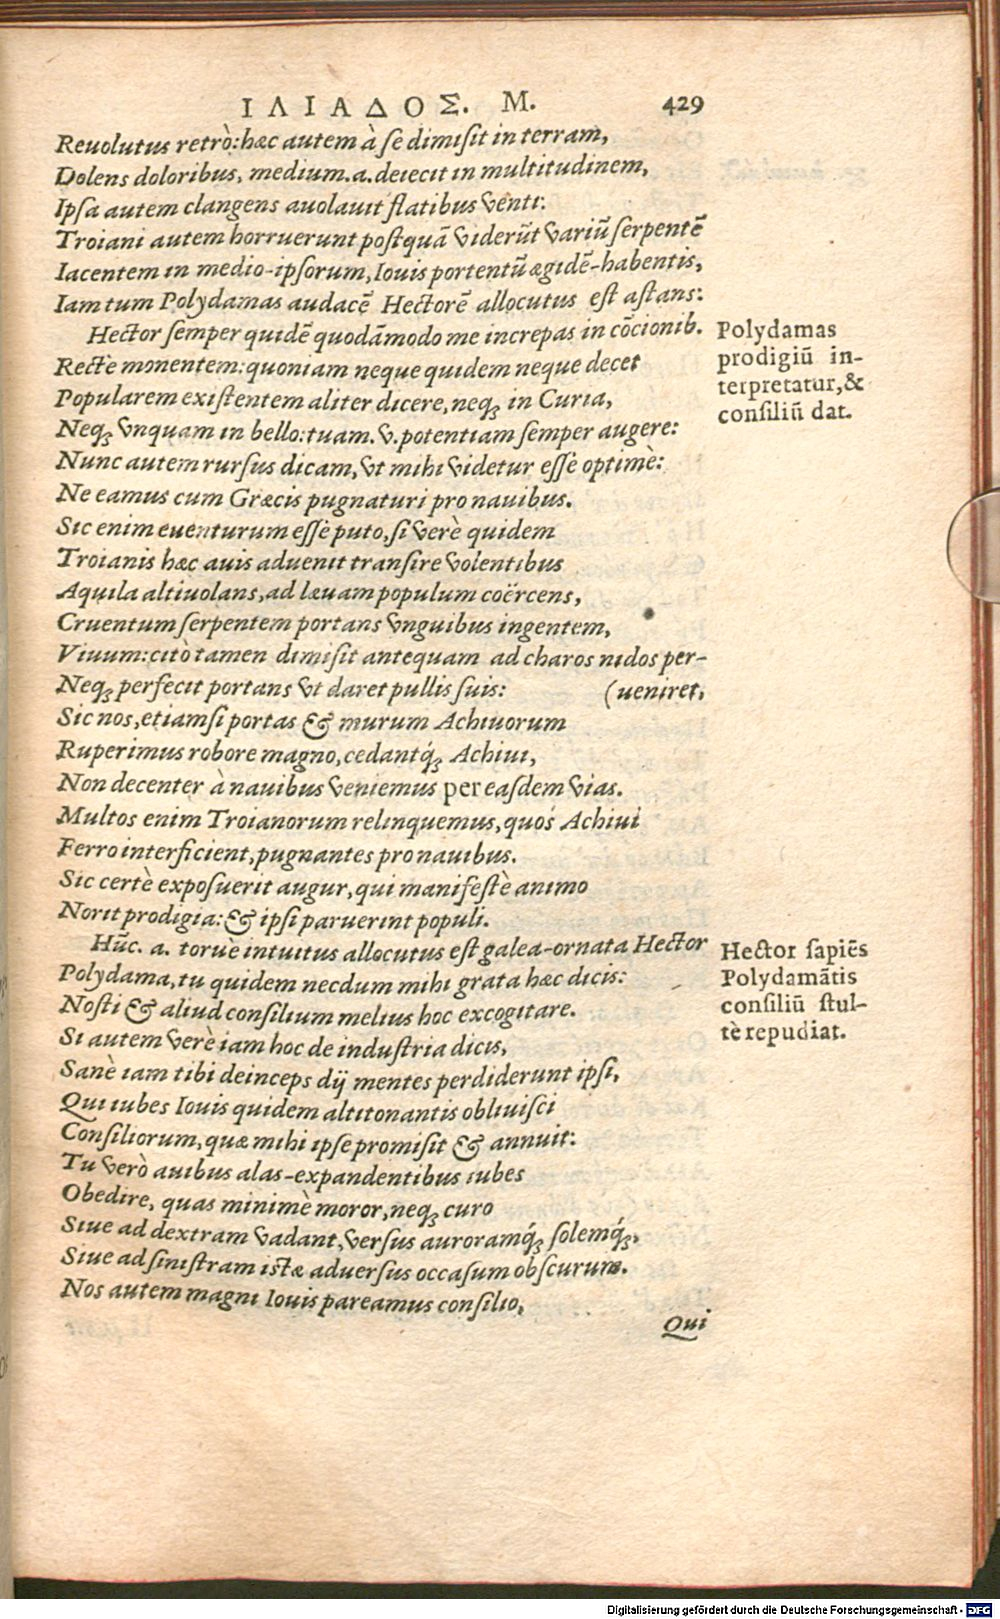 ΙΛΙΑΔΟΣ. Μ. 429
Reuolutus retrò: hæc autem à se dimisit in terram,
Dolens doloribus, medium.a.deiecit in multitudinem,
Ipsa autem clangens auolauit flatibus venti:
Troiani autem horruerunt postquā viderūt variū serpentē
Iacentem in medio-ipsorum, Iouis portentū ægidē-habentis,
Iam tum Polydamas audacē Hectorē allocutus est astans:
Hector semper quidē quodāmodo me increpas in cōcionib.
Polydamas
prodigiū in-
terpretatur, &
consiliū dat.
Rectè monentem: quoniam neque quidem neque decet
Popularem existentem aliter dicere, neq; in Curia,
Neq; vnquam in bello: tuam.v.potentiam semper augere:
Nunc autem rursus dicam, vt mihi videtur esse optimè:
Ne eamus cum Græcis pugnaturi pro nauibus.
Sic enim euenturum esse puto, si verè quidem
Troianis hæc auis aduenit transire volentibus
Aquila altiuolans, ad læuam populum coërcens,
Cruentum serpentem portans vnguibus ingentem,
Viuum: citò tamen dimisit antequam ad charos nidos per-
Neq; perfecit portans vt daret pullis suis: (ueniret,
Sic nos, etiamsi portas & murum Achiuorum
Ruperimus robore magno, cedantq́; Achiui,
Non decenter à nauibus veniemus per easdem vias.
Multos enim Troianorum relinquemus, quos Achiui
Ferro interficient, pugnantes pro nauibus.
Sic certè exposuerit augur, qui manifestè animo
Norit prodigia: & ipsi paruerint populi.
Hūc. a. toruè intuitus allocutus est galea-ornata Hector
Hector sapiēs
Polydamātis
consiliū stul-
tè repudiat.
Polydama, tu quidem necdum mihi grata hæc dicis:
Nosti & aliud consilium melius hoc excogitare.
Si autem verè iam hoc de industria dicis,
Sanè iam tibi deinceps dij mentes perdiderunt ipsi,
Qui iubes Iouis quidem altitonantis obliuisci
Consiliorum, quæ mihi ipse promisit & annuit:
Tu verò auibus alas-expandentibus iubes
Obedire, quas minimè moror, neq; curo
Siue ad dextram vadant, versus auroramq́; solemq́;,
Siue ad sinistram istæ aduersus occasum obscurum.
Nos autem magni Iouis pareamus consilio,
Qui
Digitalisierung gefördert durch die Deutsche Forschungsgemeinschaft - DFG